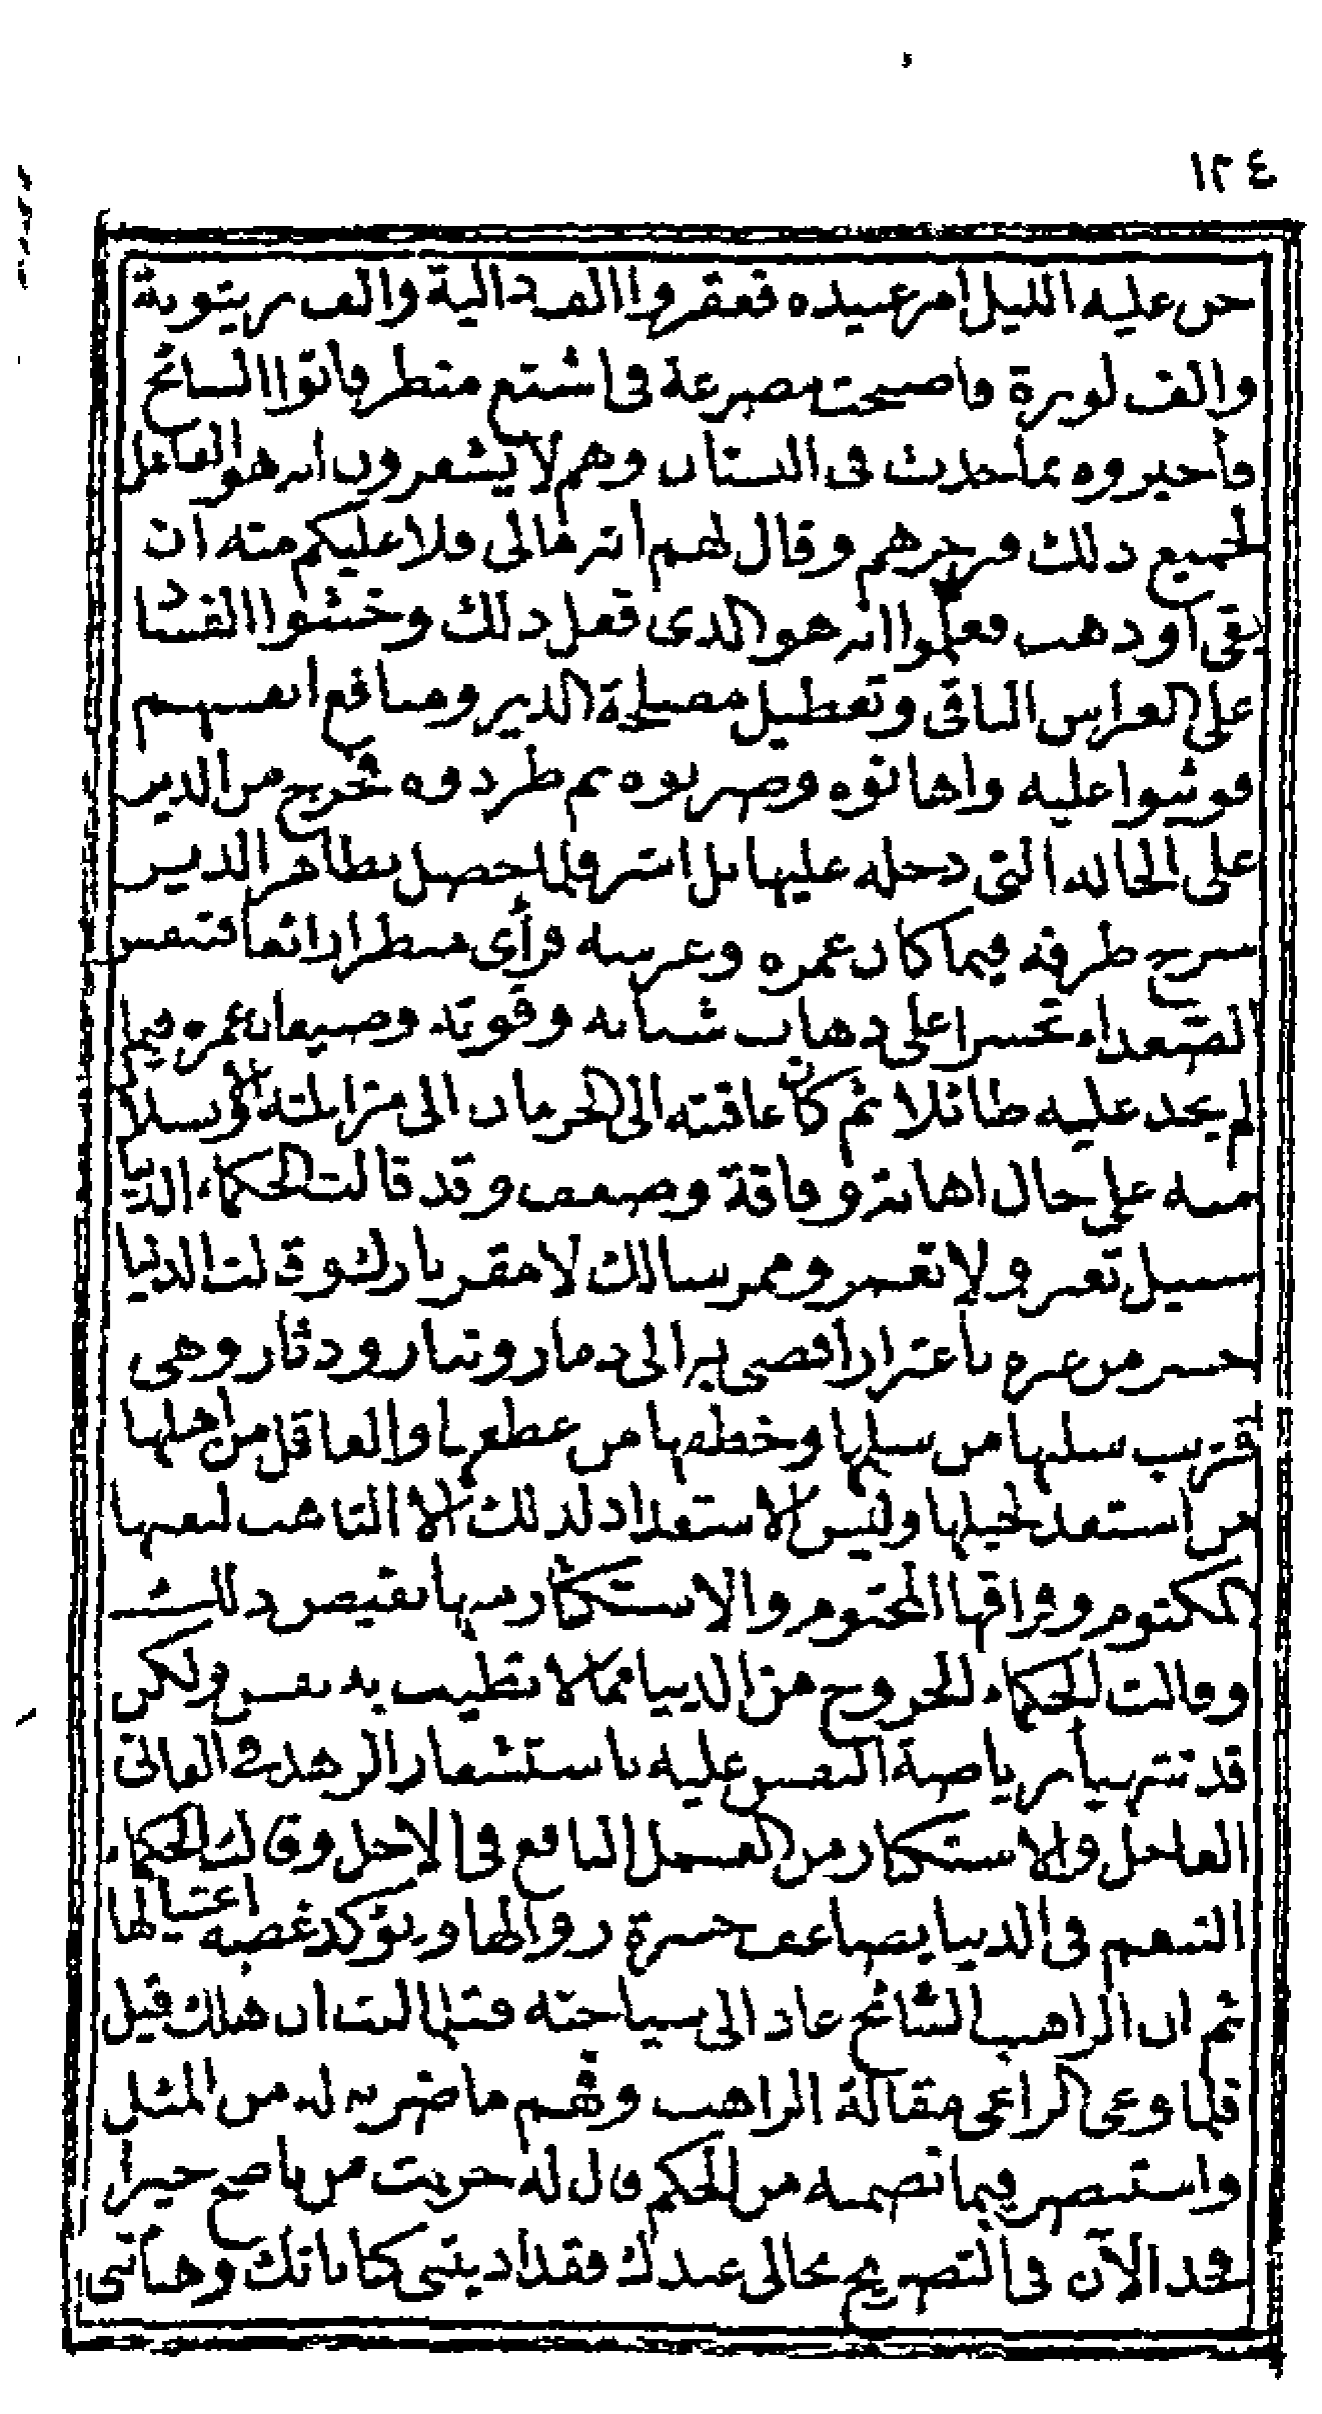 ١٣٤
جن عليه الليل امر عبيده فعقروا الف دالية والف زيتونة
والف لوزة فاصبحت مصرعة في اشنع منظر فاتوا السائح
فأخبروه بما حدث في البستان وهم لا يشعرون انه هو الفاعل
لجميع ذلك فزجرهم وقال لهم انتم مالي ولا عليكم منه ان
بقى او ذهب فعلموا انه هو الذى فعل ذلك وخشوا الفساد
على الغراس الباقى وتعطيل مصلحة الدير ومنافع انفسهم
فوثبوا عليه واهانوه وضربوه ثم طردوه فخرج من الدير
على الحاله التى دخله عليها بل اشر فلما حصل بظاهر الدير
سرح طرفه فيما كان عمره وغرسه فرأى منظرا رائعا فتنفس
الصعداء تحسرا على ذهاب شبابه وقوته وضيعان عمره فيما
لم يجد عليه طائلا ثم كان عاقبته الى الحرمان الى مزايلته الا وسلا
منه على حال اهانة وفاقة وضعف وقد قالت الحكماء الدنيا
سبيل تعبر ولا تعمر وممر سالك لا مقر بارك وقالت الدنيا
جسر من عبره باعتزار افضى به الى دمار وتبار ودثار وهى
قريب سلبها من سلبها وخطفها من عطفها والعاقل من اهلها
من استعد لحينها وليس الاستعداد لذلك الا التأهب لبعثها
المكتوم وفراقها المحتوم والاستكثار منها نقيض ذلك
وقالت الحكماء الخروج من الدنيا مما لا تطيب به نفس ولكن
قد تتهيأ برياضة النفس عليه باستشعار الزهد في الفانى
العاجل والاستكثار من العمل النافع في الاجل وقالت الحكماء
التنعم في الدنيا يضاعف حسرة زوالها ويؤكد غصة اغتيالها
ثم ان الراهب السائح عاد الى سياحته فما لبث ان هلك قيل
فلما وعى الراعى مقالة الراهب وفهم ما ضربه له من المثل
واستبصر فيما تضمنه من الحكم قال له جزيت من ناصح خيرا
فخذ الآن في التصريح بحالى عندك فقد ادبتنى كناياتك وهذبتنى